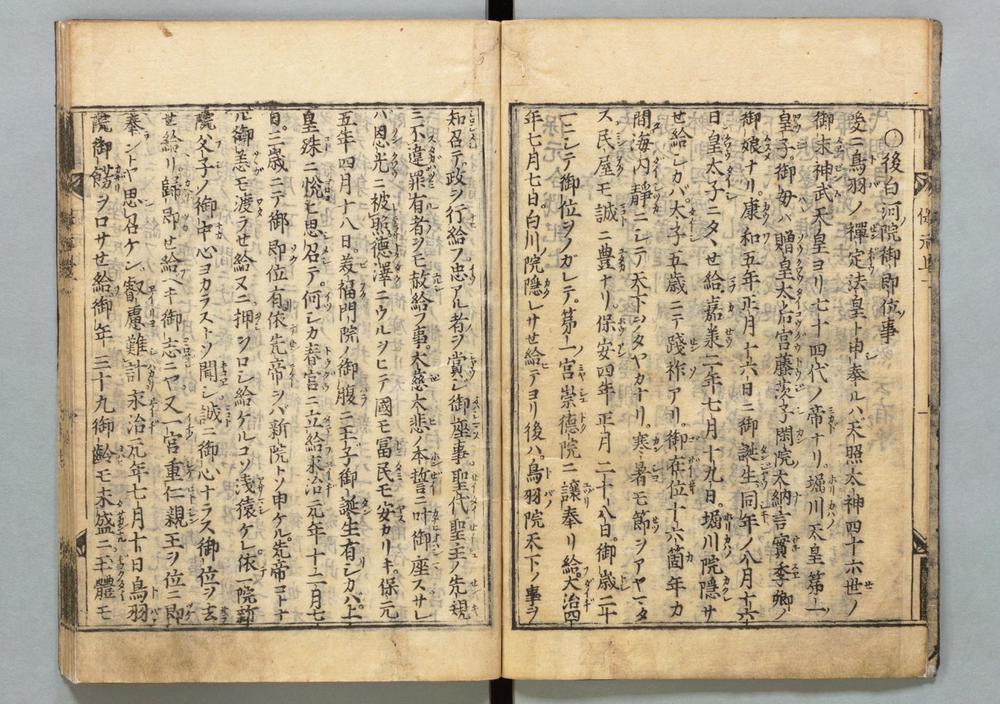 ○後白河院御即位事
後ニ鳥羽ノ禪定法皇ト申奉ルハ天照太神四十六世ノ
御末神武天皇ヨリ七十四代ノ帝ナリ。堀川天皇第一ノ
皇子。御母ハ贈皇太后宮藤茨子閑院大納言實季卿ノ
御娘ナリ。康和五年正月十六日ニ御誕生同年ノ八月十六
日皇太子ニタヽせ給嘉兼二年七月十九日。堀川院隱サ
せ給シカバ。太子五歳ニテ踐祚アリ。御在位十六箇年カ
間海内靜ニシテ天下ヲタヤカナリ。寒暑モ節ヲアヤマタ
ス民屋モ誠ニ豊ナリ。保安四年正月二十八日。御歳二十
一ニシテ御位ヲノガレテ。第一ノ宮崇德院ニ讓奉リ給。大治四
年七月七日白川院隱レサせ給テヨリ後ハ。鳥羽院天下ノ事ヲ
知召テ。政ヲ行給フ忠アル者ヲ賞シ御座事。聖代聖主ノ先規
ニ不違罪有者ヲモ赦給フ事。大慈大悲ノ本誓ニ叶御座スサレ
バ恩光ニ被照德澤ニウルヲヒテ國モ冨民モ安カリキ。保元
五年四月十八日。美福門院ノ御腹ニ王子御誕生有シカバ。上
皇殊ニ悦ヒ思召テ。何シカ春宮ニ立給永治元年十二月七
日。三歳ニテ御即位有。依先帝ヲバ新院トソ申ケル。先帝コトナ
ル御恙モ渡ラせ給ヌニ。押ヲロシ給ケルコソ淺猿ケレ。依一院新
院父子ノ御中心ヨカラストソ聞シ。誠ニ御心ナラス御位ヲ去
せ給リ。歸即せ給ヘキ御志ニヤ又一宮重仁親王ヲ位ニ即
奉ントヤ思召ケン。叡慮難計永治元年七月十日。鳥羽
院御餝ヲロサせ給御年三十九御齡モ未盛ニ玉體モ